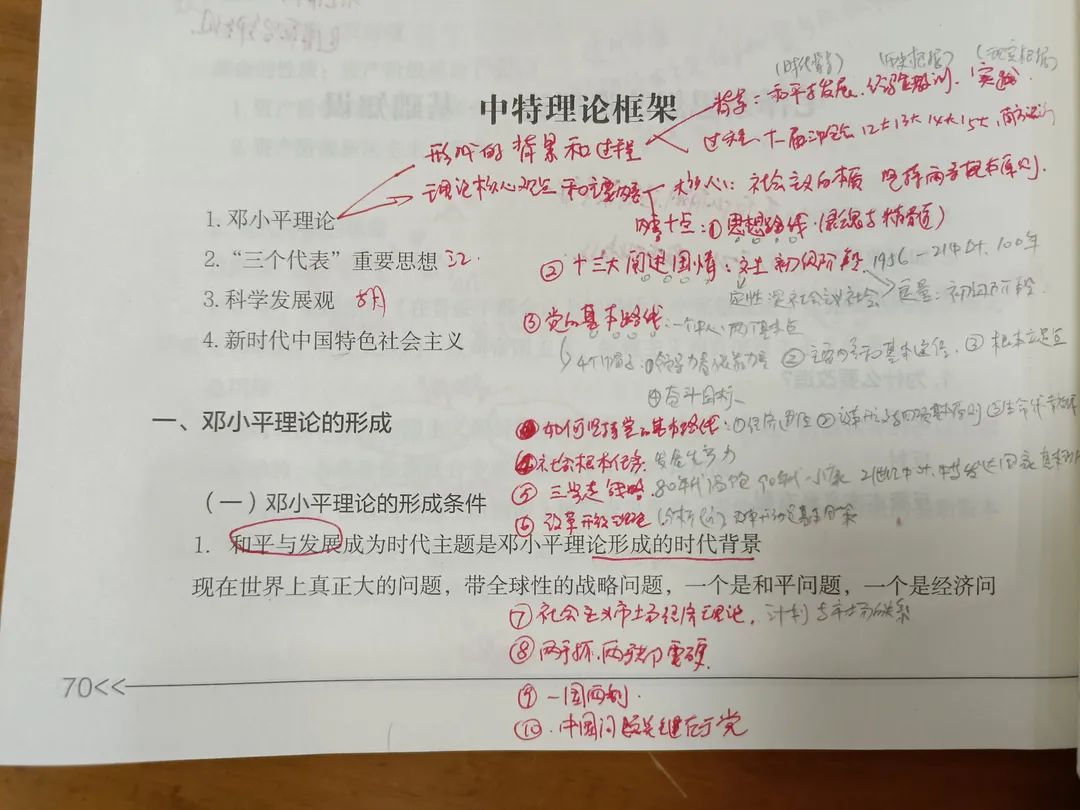 (时代背景) (历史根据) (现实根据)
中特理论框架
背景：和平与发展、经验教训、实践
形成的背景和过程
过程 十一届三中全会 12大13大14大15大、南方谈话
理论核心观点和主要内容
核心：社会主义的本质 坚持两手抓
1.邓小平理论
内容十点：①思想路线（灵魂与精髓）
2.“三个代表”重要思想 江.
②十三大阐述国情：社主初级阶段. 1956-21中叶、100年
定性：社会主义社会 定量：初级阶段
3.科学发展观 胡
③党的基本路线：一个中心、两个基本点
4.新时代中国特色社会主义
①领导力量依靠力量 ②主要内容和基本途径、③根本立足点
④奋斗目标
一、邓小平理论的形成
如何坚持党的基本路线：①经济建设
④社会根本任务. 发展生产力
⑤三步走战略. 80年代温饱 90年代小康 21世纪中叶. 中等发达国家
（一）邓小平理论的形成条件
⑥改革开放理论
1. 和平与发展成为时代主题是邓小平理论形成的时代背景
现在世界上真正大的问题，带全球性的战略问题，一个是和平问题，一个是经济问
⑦社会主义市场经济理论，计划与市场的关系
⑧两手抓、两手都要硬.
70<<
⑨一国两制.
⑩.中国问题关键在于党